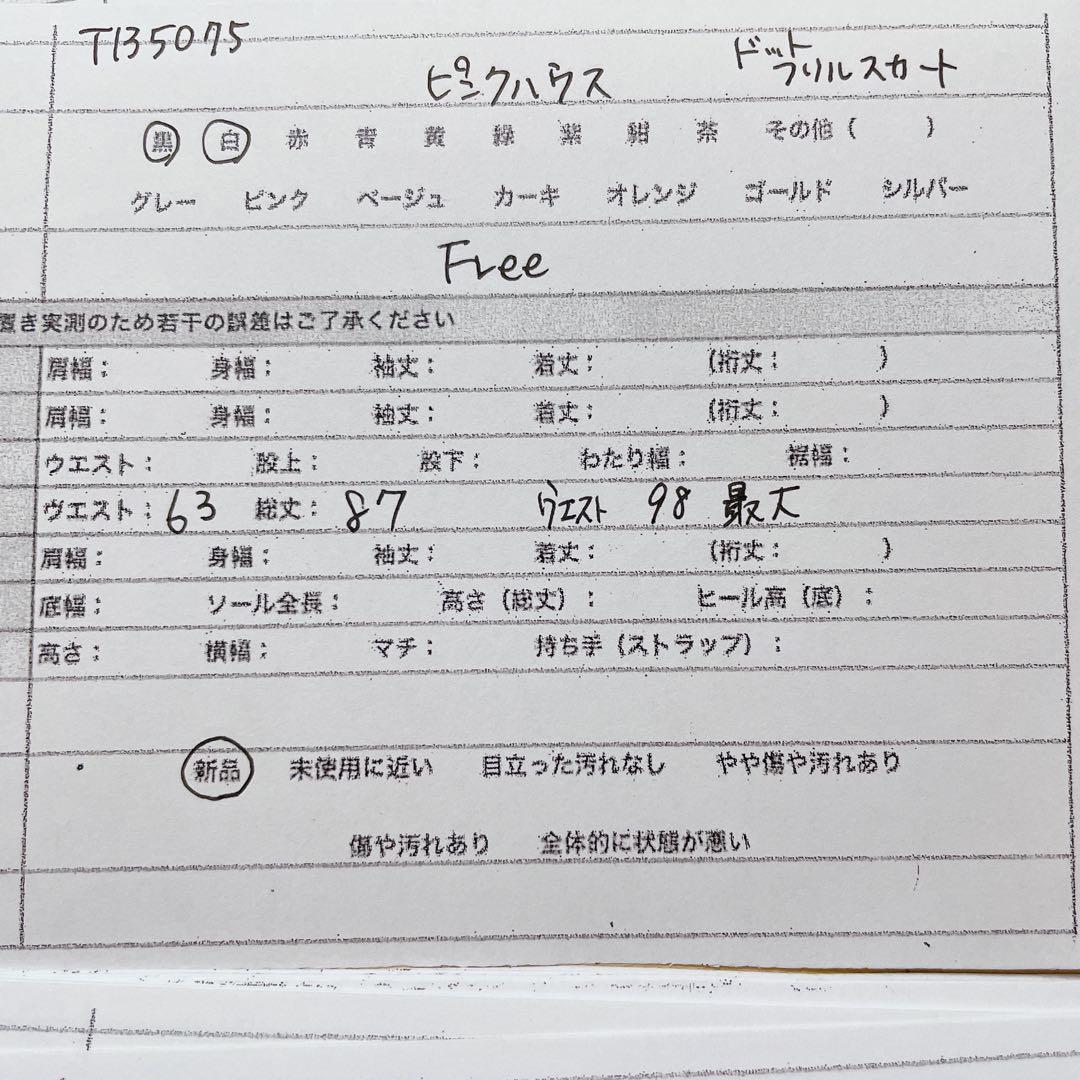 T135075
ピンクハウス
ドット
フリルスカート
黒 白 赤 青 黄 緑 紫 紺 茶 その他 ( )
グレー ピンク ベージュ カーキ オレンジ ゴールド シルバー
Free
置き実測のため若干の誤差はご了承ください
肩幅: 身幅: 袖丈: 着丈: (裄丈: )
肩幅: 身幅: 袖丈: 着丈: (裄丈: )
ウエスト: 股上: 股下: わたり幅: 裾幅:
ウエスト: 63 総丈: 87 ウエスト 98 最大
肩幅: 身幅: 袖丈: 着丈: (裄丈: )
底幅: ソール全長: 高さ (総丈) : ヒール高 (底) :
高さ: 横幅: マチ: 持ち手 (ストラップ) :
新品 未使用に近い 目立った汚れなし やや傷や汚れあり
傷や汚れあり 全体的に状態が悪い